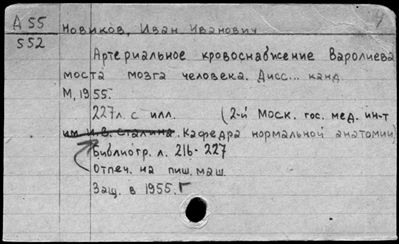 А 55
552
Новиков, Иван Иванович
Артериальное кровоснабжение Варолиева
моста мозга человека. Дисс... канд.
М, 1955.
227 л. с илл. (2-й Моск. гос. мед. ин-т
им. И.В. Сталина. Кафедра нормальной анатомии)
Библиогр. л. 216-227
Отпеч. на пиш. маш.
Защ. в 1955 г